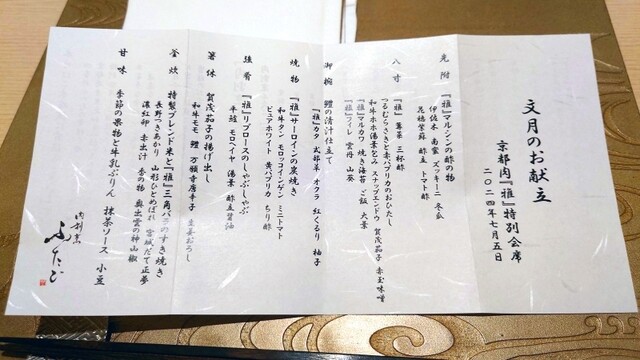 文月のお献立
京都肉『雅』特別会席
二〇二四年七月五日
先附 『雅』マルシンの酢の物
伊佐木 南蛮 ズッキーニ 冬瓜
花穂紫蘇 酢立 トマト酢
八寸 『雅』 蓴菜 三杯酢
つるむらさきと赤パプリカのおひたし
和牛ホホ湯葉とみ スナップエンドウ 賀茂茄子 赤玉味噌
『雅』マルカワ 焼き海苔 ご飯 大葉
『雅』ヒレ 雲丹 山葵
御椀 鱧の清汁仕立て
『雅』カタ 式部草 オクラ 紅くるり 柚子
焼物 『雅』サーロインの炭焼き
和牛タン モロッコインゲン ミニトマト
ピュアホワイト 黄パプリカ ちり酢
強肴 『雅』リブロースのしゃぶしゃぶ
平茸 モロヘイヤ 湯葉 酢立醤油
箸休 賀茂茄子の揚げ出し
和牛モモ 鱧 万願寺唐辛子 生姜おろし
釜炊 特製ブレンド米と『雅』三角バラのすき焼き
長野つきあかり 山形ひとめぼれ 宮城だて正夢
濃紅卵 赤出汁 香の物 奥出雲の神山椒
甘味 季節の果物と牛乳ぷりん 抹茶ソース 小豆
肉割烹
ふたご